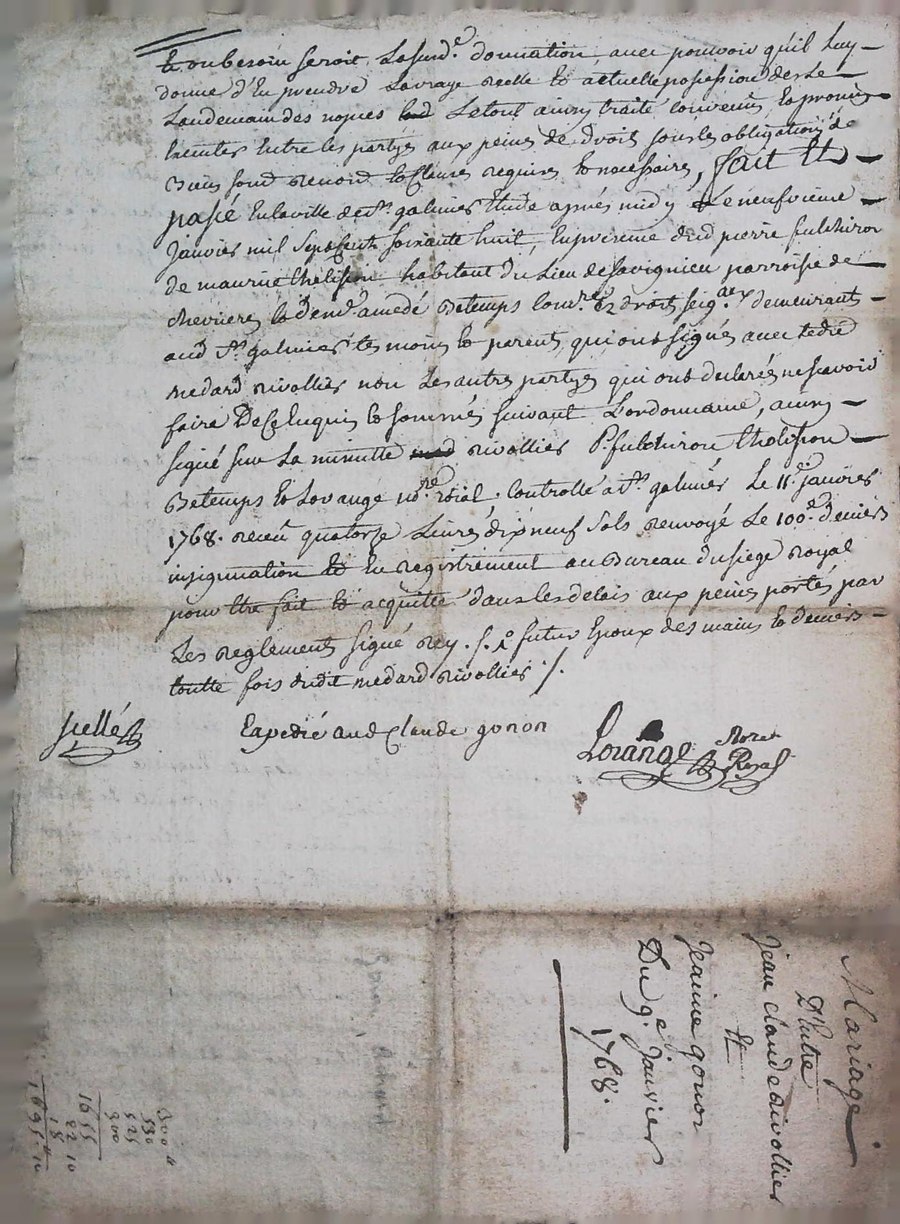 et ou besoin seroit Lasusd.e donnation, avec pouvoir quil luy
donne d'En prendre La vraye reelle et actuelle posession des Le
Landemain des nopces Letout ainsy traité convenus et promis
Entre les partyes aux peines de droit sous les obligations de
Biens renond et Clauses requises et necessaires, fait Et
passé En laville de St. galmier Etude aprés midy Le neufvieme
Janvier mil Sept Cents soixante huit, En presence dud pierre fulchiron
de maurice thelisson habitant du Lieu de Savignieu parroisse de
chevrieres et Betemps demeurants
aud St. galmier temoins et parents, qui ont signés avec ledit
medard rivollier non Les autres partyes qui ont declarés ne scavoir
faire De Ce Enquis et sommés suivant L'ordonnance, ainsy
signé sur La minutte rivollier P. fulchiron thelisson
Betemps et Lorange no.re roial. Controllé a St. galmier Le 11.e janvier
1768. receu quatorze Livres dix neuf sols renvoyé Le 100.e deniers
insignuation et En registrement au Bureau du siege royal
pour Etre fait et acquitté dans les delais aux peines portés par
Les reglement signé rey. futur Epoux des mains et deniers
toutte fois dudit medard rivollier ./.
scellé
Expedié aud Claude gonon
Lorange Notre Royal
Mariage
D'Entre
jean claude rivollier
Et
Jeanne gonon
Du 9.e Janvier
1768.
300
530
525
300
1655
22 10
18
1695. 10